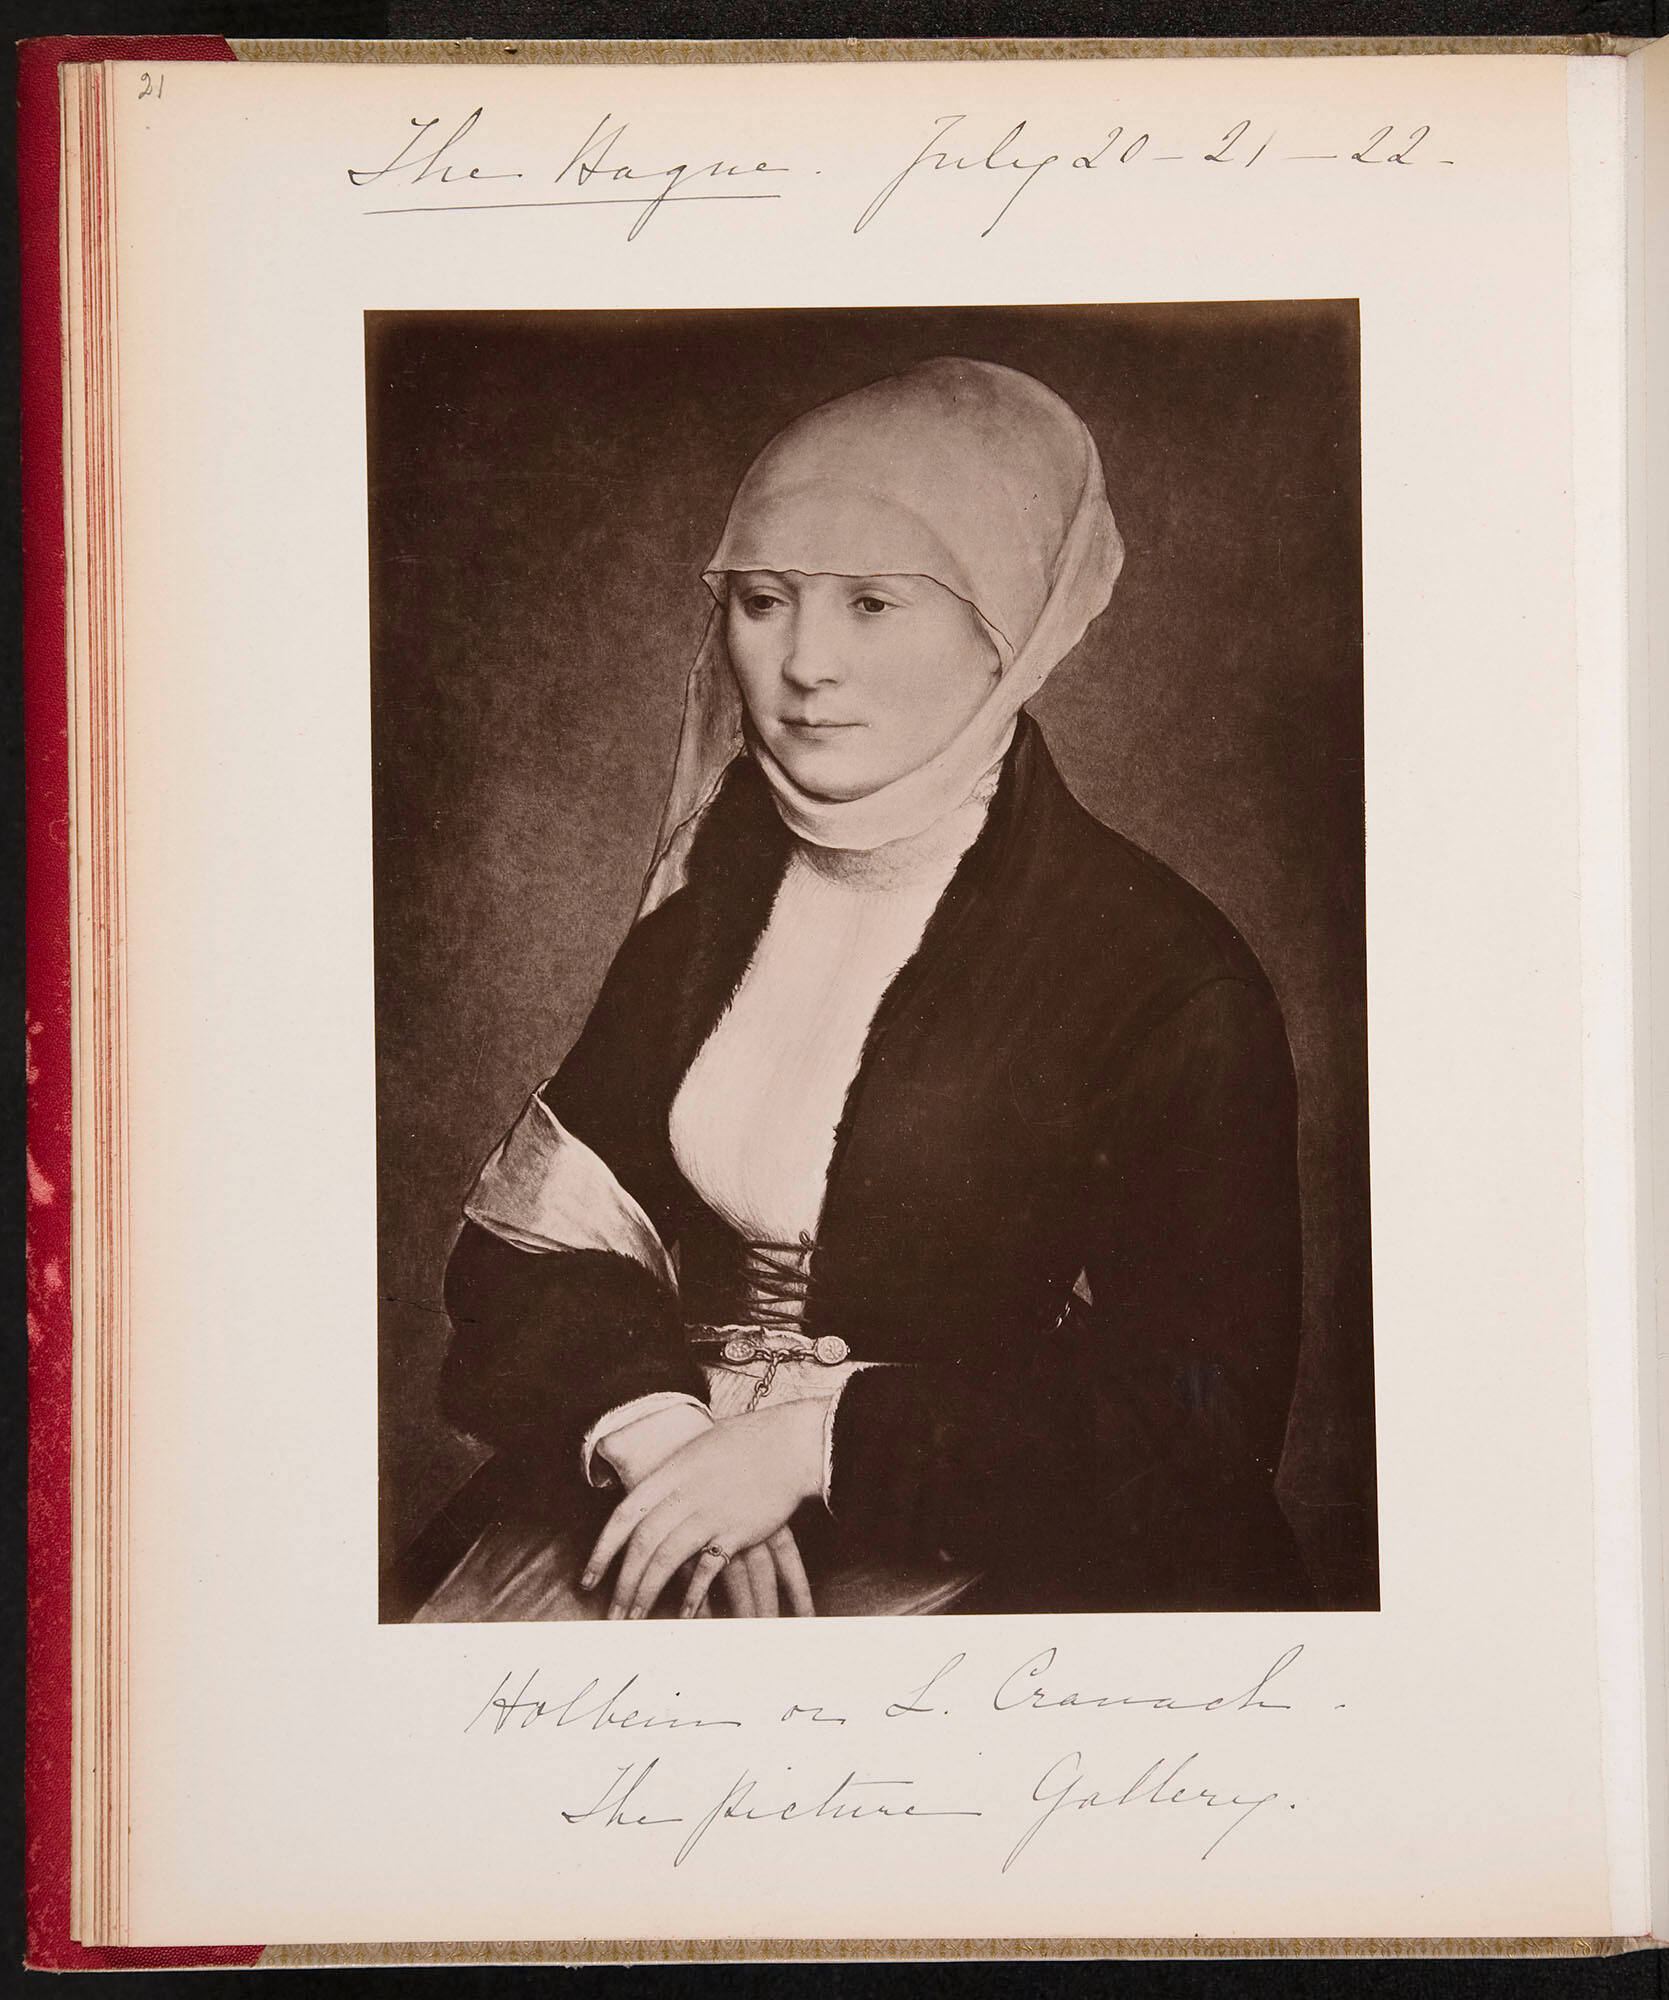 21
The Hague. July 20 - 21 - 22 -
Holbein or L. Cranach.
The Picture Gallery.